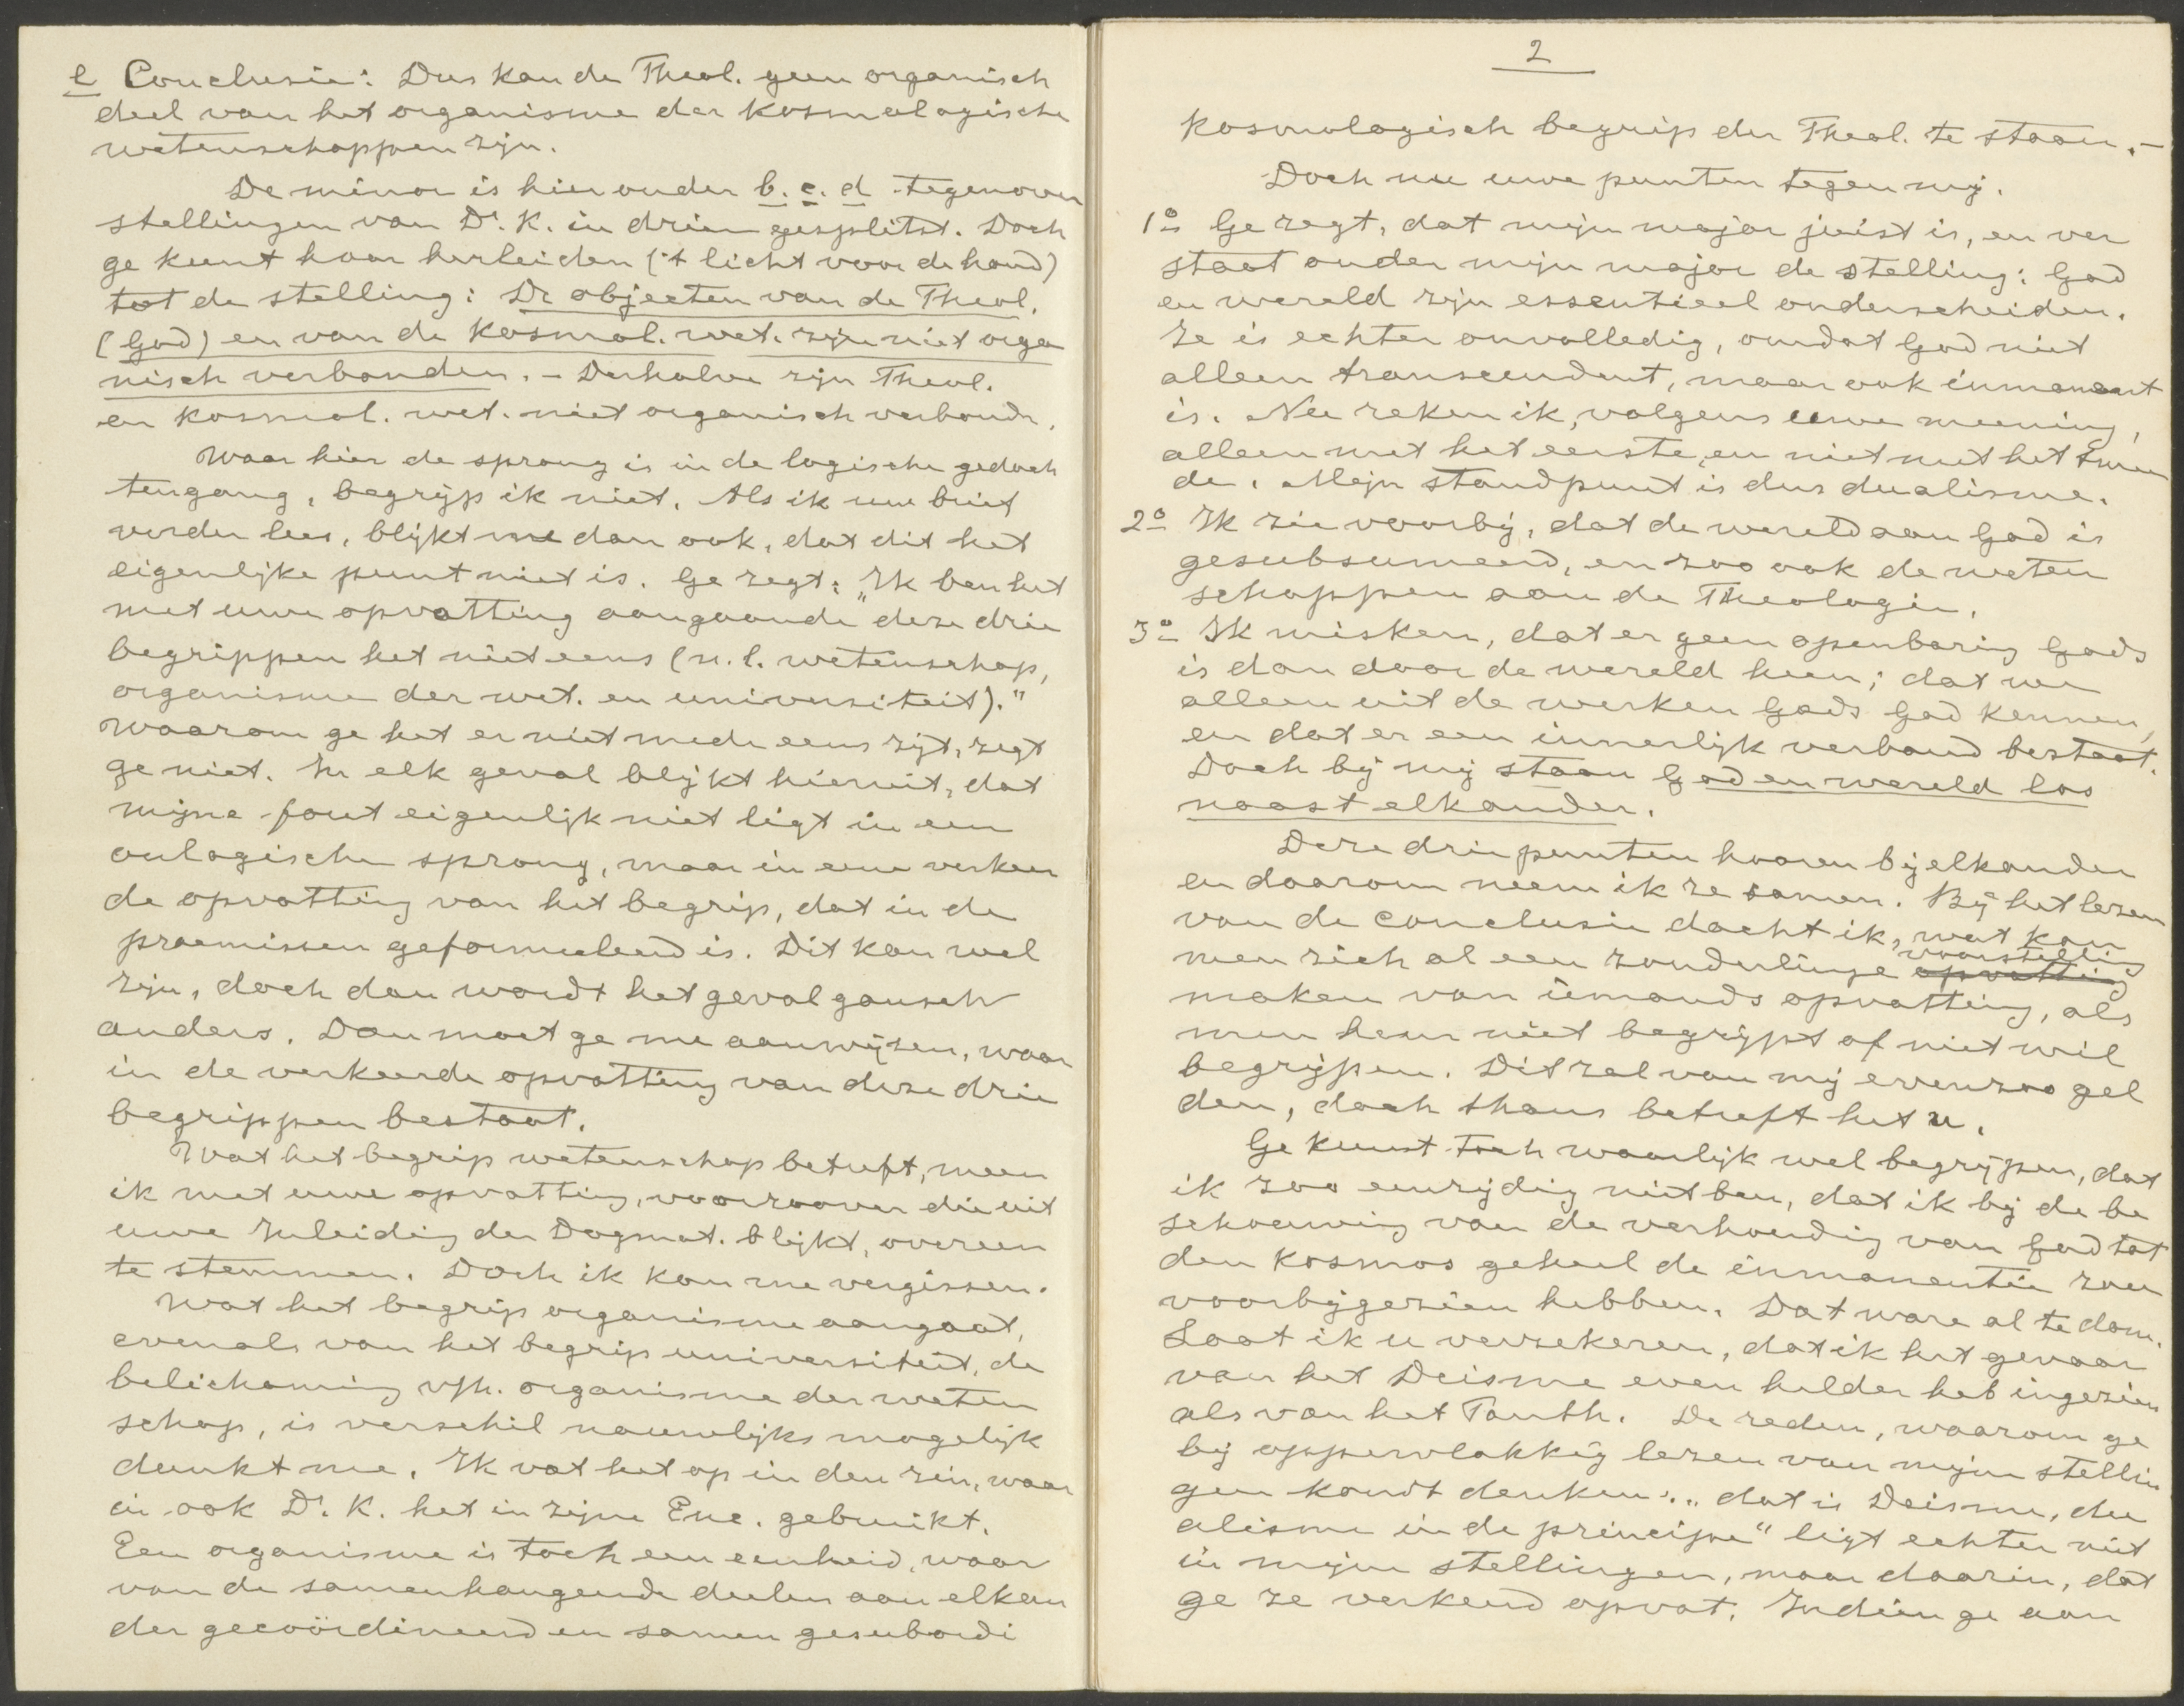 e Conclusie: Dus kan de Theol. geen organisch
deel van het organisme der kosmologische
wetenschappen zijn.
De minor is hier onder b. c. d tegenover
stellingen van Dr. K. in drieen gesplitst. Doch
ge kunt haar herleiden ('t licht voor de hand)
tot de stelling: De objecten van de Theol.
(God) en van de kosmol. wet. zijn niet orga
nisch verbonden. – Derhalve zijn Theol.
en kosmol. wet. niet organisch verbondn.
Waar hier de sprong is in de logische gedach
tengang, begrijp ik niet. Als ik uw brief
verder lees, blijkt me dan ook, dat dit het
eigenlijke punt niet is. Ge zegt: „Ik ben het
met uwe opvatting aangaande deze drie
begrippen het niet eens (n.l. wetenschap,
organisme der wet. en universiteit)."
Waarom ge het er niet mede eens zijt, zegt
ge niet. In elk geval blijkt hieruit, dat
mijne fout eigenlijk niet ligt in een
onlogische sprong, maar in eene verkeer
de opvatting van het begrip, dat in de
praemissen geformuleerd is. Dit kan wel
zijn, doch dan wordt het geval gansch
anders. Dan moet ge me aanwijzen, waar
in de verkeerde opvatting van deze drie
begrippen bestaat.
Wat het begrip wetenschap betreft, meen
ik met uwe opvatting, voorzoover die uit
uwe Inleiding der Dogmat. blijkt, overeen
te stemmen. Doch ik kan me vergissen.
Wat het begrip organisme aangaat,
evenals van het begrip universiteit, de
belichaming v/h. organisme der weten
schap, is verschil nauwelijks mogelijk
dunkt me. Ik vat het op in den zin, waar
in ook Dr. K. het in zijne Enc. gebruikt.
Een organisme is toch een eenheid, waar
van de samenhangende deelen aan elkan
der gecoördineerd en samen gesubordi
2
kosmologisch begrip der Theol. te staan. –
Doch nu uwe punten tegen mij.
1o Ge zegt, dat mijn major juist is, en ver
staat onder mijn major de stelling: God
en wereld zijn essentieel onderscheiden.
Ze is echter onvolledig, omdat God niet
alleen transcendent, maar ook inmanent
is. Nu reken ik, volgens uwe meening,
alleen met het eerste, en niet met het twee
de. Mijn standpunt is dus dualisme.
2o Ik zie voorbij, dat de wereld aan God is
gesubsumeerd, en zoo ook de weten
schappen aan de Theologie.
3o Ik misken, dat er geen openbaring Gods
is dan door de wereld heen; dat we
alleen uit de werken Gods God kennen,
en dat er een innerlijk verband bestaat.
Doch bij mij staan God en wereld los
naast elkander.
Deze drie punten hooren bij elkander
en daarom neem ik ze samen. Bij het lezen
van de conclusie dacht ik, wat kan
men zich al een zonderlinge opvatting voorstelling
maken van iemands opvatting, als
men hem niet begrijpt of niet wil
begrijpen. Dit zal van mij evenzoo gel
den, doch thans betreft het u.
Ge kunt toch waarlijk wel begrijpen, dat
ik zoo eenzijdig niet ben, dat ik bij de be
schouwing van de verhouding van God tot
den kosmos geheel de inmanentie zou
voorbijgezien hebben. Dat ware al te dom.
Laat ik u verzekeren, dat ik het gevaar
van het Deisme even helder heb ingezien
als van het Panth. De reden, waarom ge
bij oppervlakkig lezen van mijne stellin
gen kondt denken: „dat is Deisme, du
alisme in de principe" ligt echter niet
in mijne stellingen, maar daarin, dat
ge ze verkeerd opvat. Indien ge aan